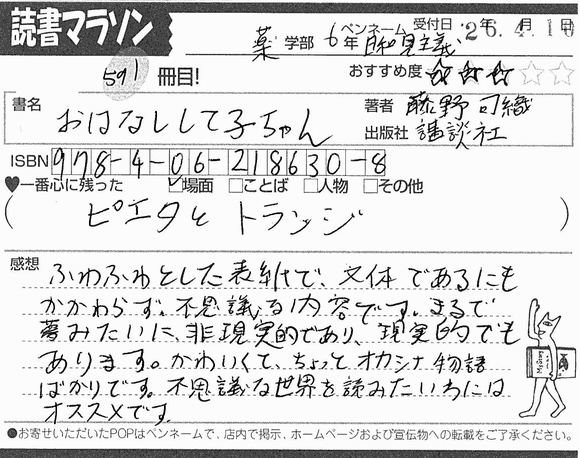 読書マラソン
ペンネーム 受付日 26年4月10日
薬 学部 6年 日和見主義
591 冊目!
おすすめ度 ☆☆☆☆☆
書名 おはなしして子ちゃん
著者 藤野可織
出版社 講談社
ISBN 978-4-06-218630-8
♥一番心に残った ☑場面 □ことば □人物 □その他
(ピエタとトランジ)
感想
ふわふわとした表紙で、文体であるにも
かかわらず、不思議な内容です。まるで
夢みたいに、非現実的であり、現実的でも
あります。かわいくて、ちょっとオカシナ物語
ばかりです。不思議な世界を読みたい方には
オススメです。
●お寄せいただいたPOPはペンネームで、店内で掲示、ホームページおよび宣伝物への転載をご了承ください。